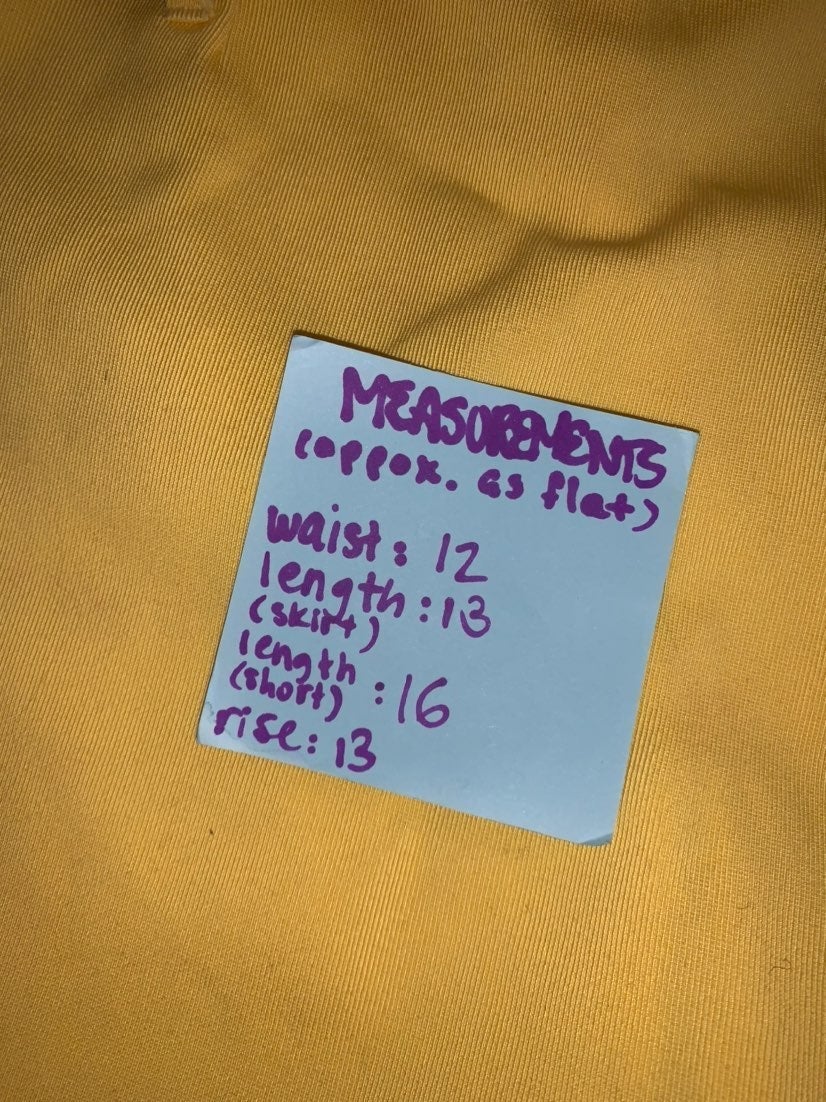 MEASUREMENTS
(appox. as flat)
waist: 12
length :13
(skirt)
length
(short) :16
rise: 13